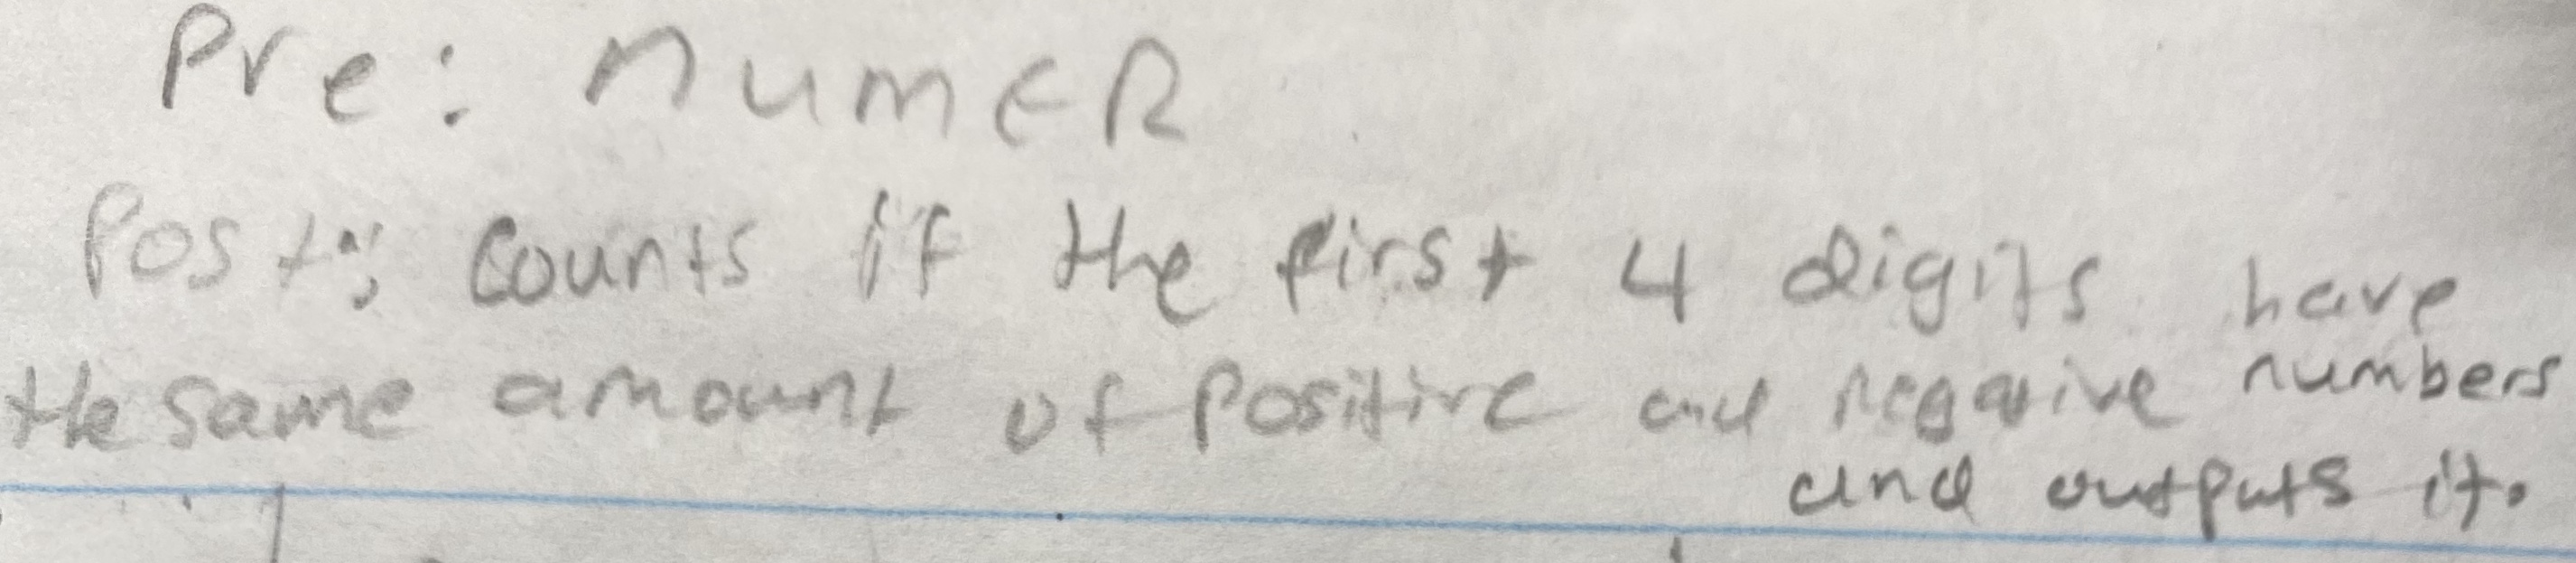 Pre: num ∈ R
Post: counts if the first 4 digits have
the same amount of positive and negative numbers
and outputs it.